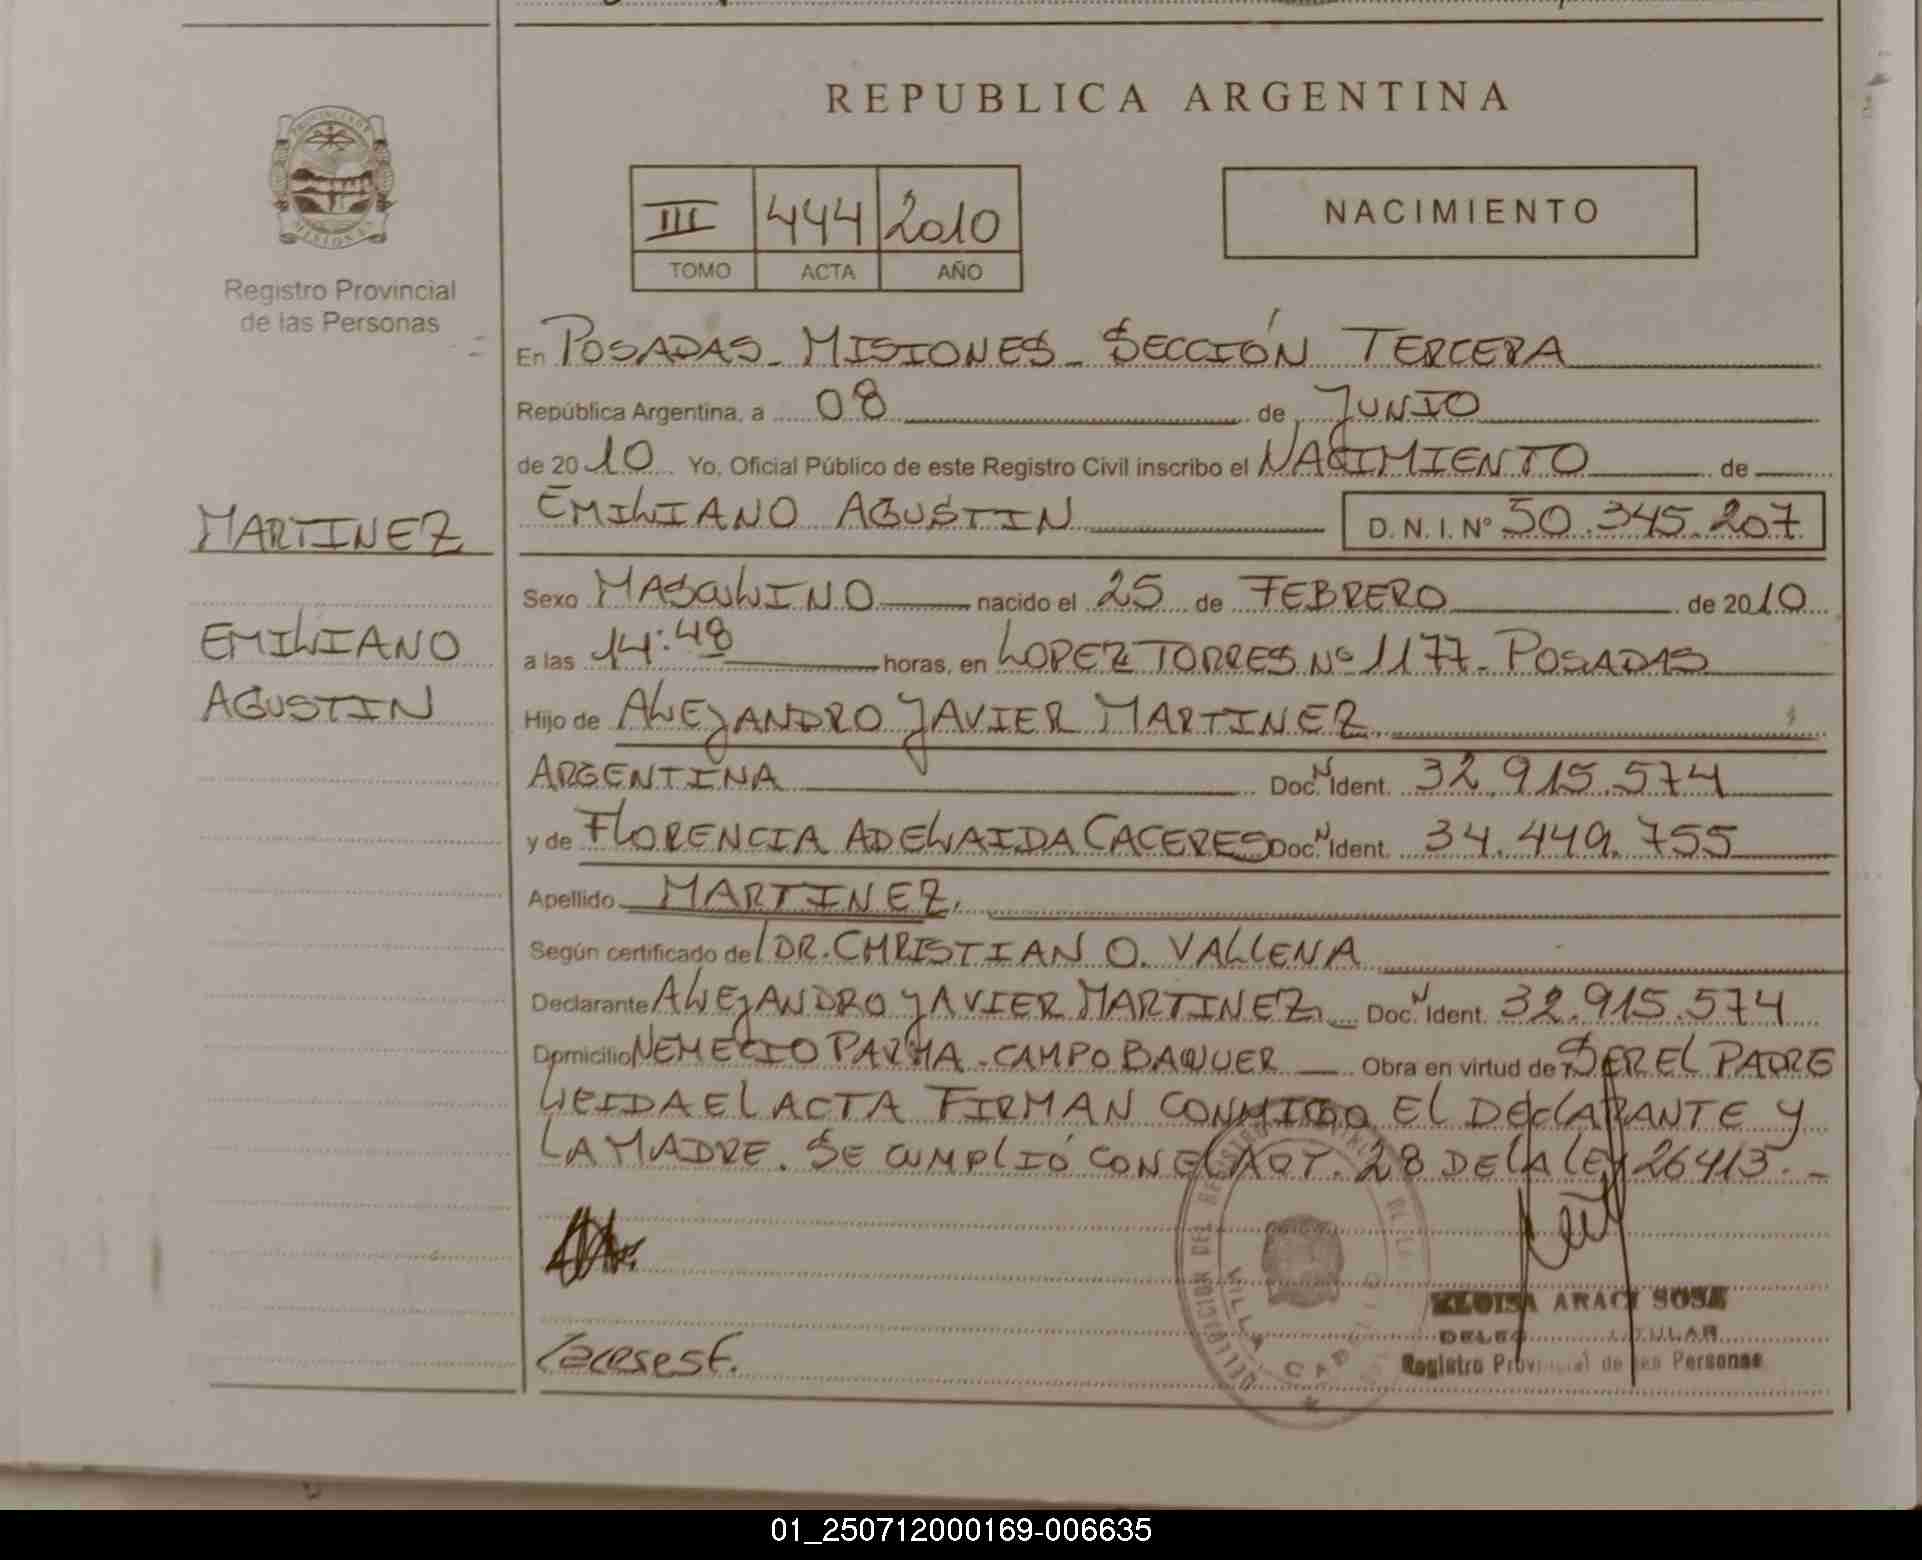 REPUBLICA ARGENTINA
PROVINCIA DE MISIONES
III 444 2010
TOMO ACTA AÑO
NACIMIENTO
Registro Provincial
de las Personas
En POSADAS - MISIONES - SECCIÓN TERCERA
República Argentina, a 08 de JUNIO
de 2010 Yo, Oficial Público de este Registro Civil inscribo el NACIMIENTO de
EMILIANO AGUSTIN D.N.I. Nº 50.345.207
MARTINEZ
EMILIANO
AGUSTIN
Sexo MASCULINO nacido el 25 de FEBRERO de 2010
a las 14:48 horas, en LOPEZ TORRES Nº 1177 - POSADAS
Hijo de ALEJANDRO JAVIER MARTINEZ
ARGENTINA Doc. N Ident. 32.915.574
y de FLORENCIA ADELAIDA CACERES Doc. N Ident. 34.449.755
Apellido MARTINEZ.
Según certificado del DR. CHRISTIAN O. VALLENA
Declarante ALEJANDRO JAVIER MARTINEZ Doc. N Ident. 32.915.574
Domicilio NEMECIO PARMA - CAMPO BAQUER Obra en virtud de SER EL PADRE
LEIDA EL ACTA FIRMAN CONMIGO EL DECLARANTE Y
LA MADRE. SE CUMPLIÓ CON EL ART. 28 DE LA LEY 26413. -
DELEGACION DEL REGISTRO
VILLA CABELLO
ELOISA ARACI SOSA
TITULAR
Registro Provincial de las Personas
Caceres F.
01_250712000169-006635